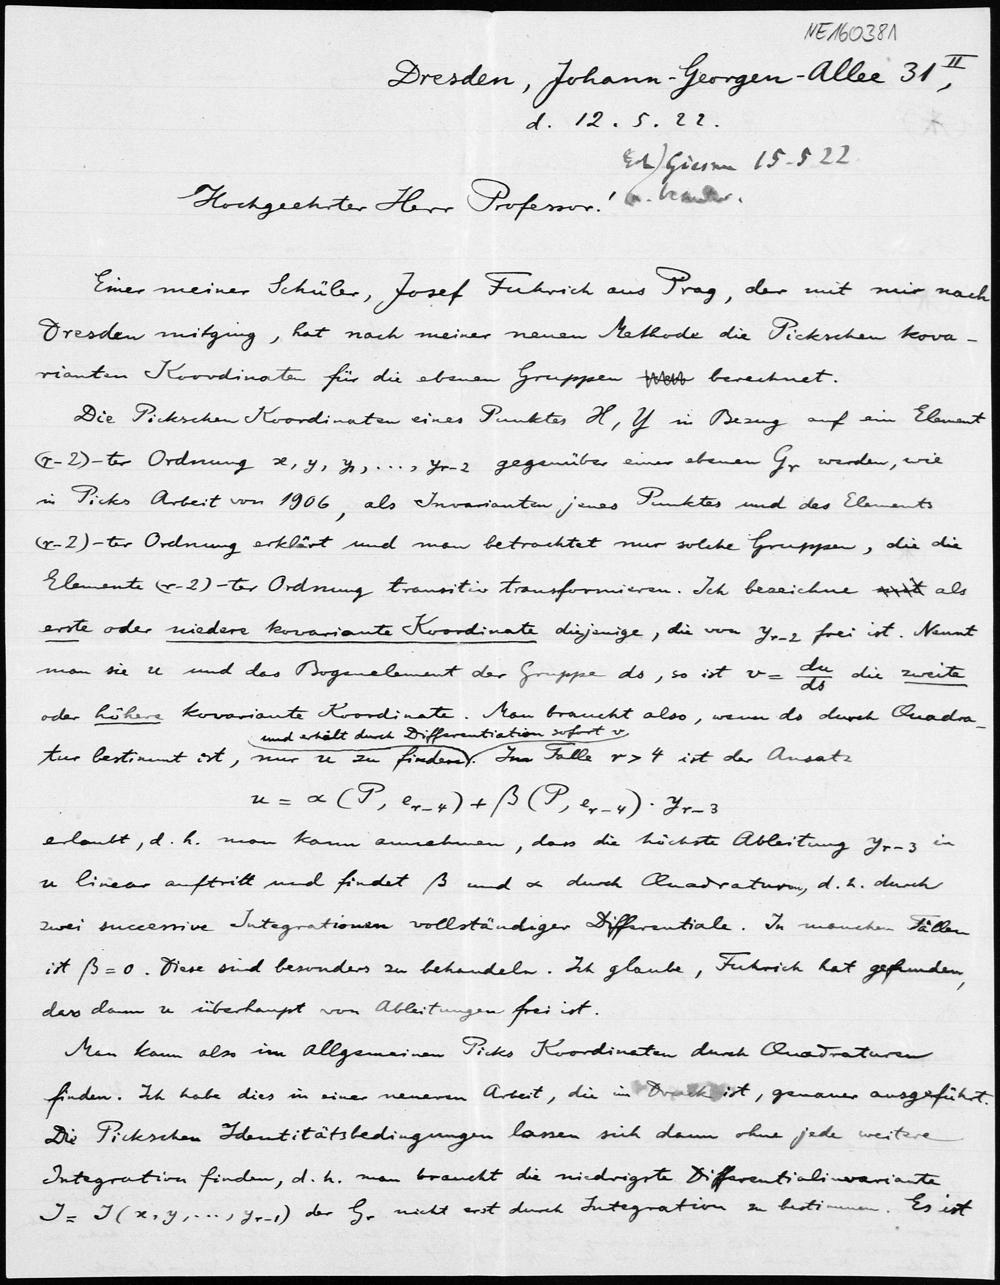 NE160381
Dresden, Johann-Georgen-Allee 31 II,
d. 12. 5. 22.
15-5 22
Hochgeehrter Herr Professor!
Einer meiner Schüler, Josef Fuhrich aus Prag, der mit mir nach
Dresden mitging, hat nach meiner neuen Methode die Pickschen kova-
rianten Koordinaten für die ebenen Gruppen berechnet.
Die Pickschen Koordinaten eines Punktes X, Y in Bezug auf ein Element
(r-2)-ter Ordnung x, y, y₁, ..., yr-2 gegenüber einer ebenen Gr werden, wie
in Picks Arbeit von 1906, als Invarianten jenes Punktes und des Elements
(r-2)-ter Ordnung erklärt und man betrachtet nur solche Gruppen, die die
Elemente (r-2)-ter Ordnung transitiv transformieren. Ich bezeichne als
erste oder niedere kovariante Koordinate diejenige, die von yr-2 frei ist. Nennt
man sie u und das Bogenelement der Gruppe ds, so ist v = du/ds die zweite
oder höhere kovariante Koordinate. Man braucht also, wenn ds durch Quadra-
und erhält durch Differentiation sofort v
tur bestimmt ist, nur u zu finden. Im Falle r > 4 ist der Ansatz
u = α (P, er-4) + β (P, er-4) · yr-3
erlaubt, d. h. man kann annehmen, dass die höchste Ableitung yr-3 in
u linear auftritt und findet β und α durch Quadraturen, d. h. durch
zwei successive Integrationen vollständiger Differentiale. In manchen Fällen
ist β = 0. Diese sind besonders zu behandeln. Ich glaube, Fuhrich hat gefunden,
dass dann u überhaupt von Ableitungen frei ist.
Man kann also im Allgemeinen Picks Koordinaten durch Quadraturen
finden. Ich habe dies in einer neueren Arbeit, die in Druck ist, genauer ausgeführt.
Die Pickschen Identitätsbedingungen lassen sich dann ohne jede weitere
Integration finden, d. h. man braucht die niedrigste Differentialinvariante
J = J (x, y, ..., yr-1) der Gr nicht erst durch Integration zu bestimmen. Es ist